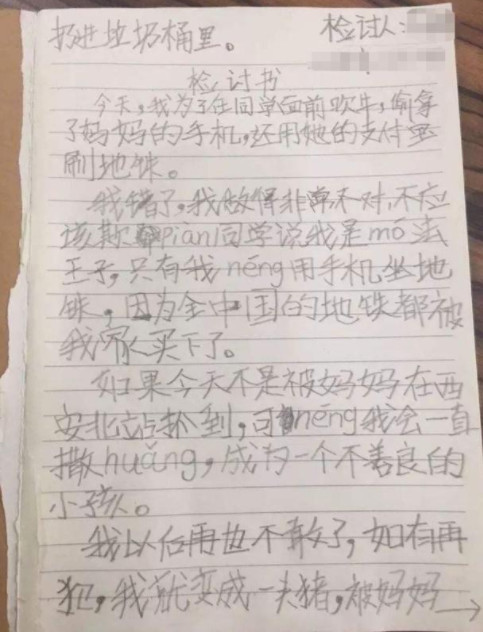 扔进垃圾桶里。
检讨人:
检讨书
今天,我为了在同学面前吹牛,偷拿
了妈妈的手机,还用她的支付宝
刷地铁。
我错了,我做得非常不对,不应
该欺piàn同学说我是mó法
王子,只有我néng用手机坐地
铁,因为全中国的地铁都被
我家买下了。
如果今天不是被妈妈在西
安北站抓到,可néng我会一直
撒huǎng,成为一个不善良的
小孩。
我以后再也不敢了,如有再
犯,我就变成一头猪,被妈妈→